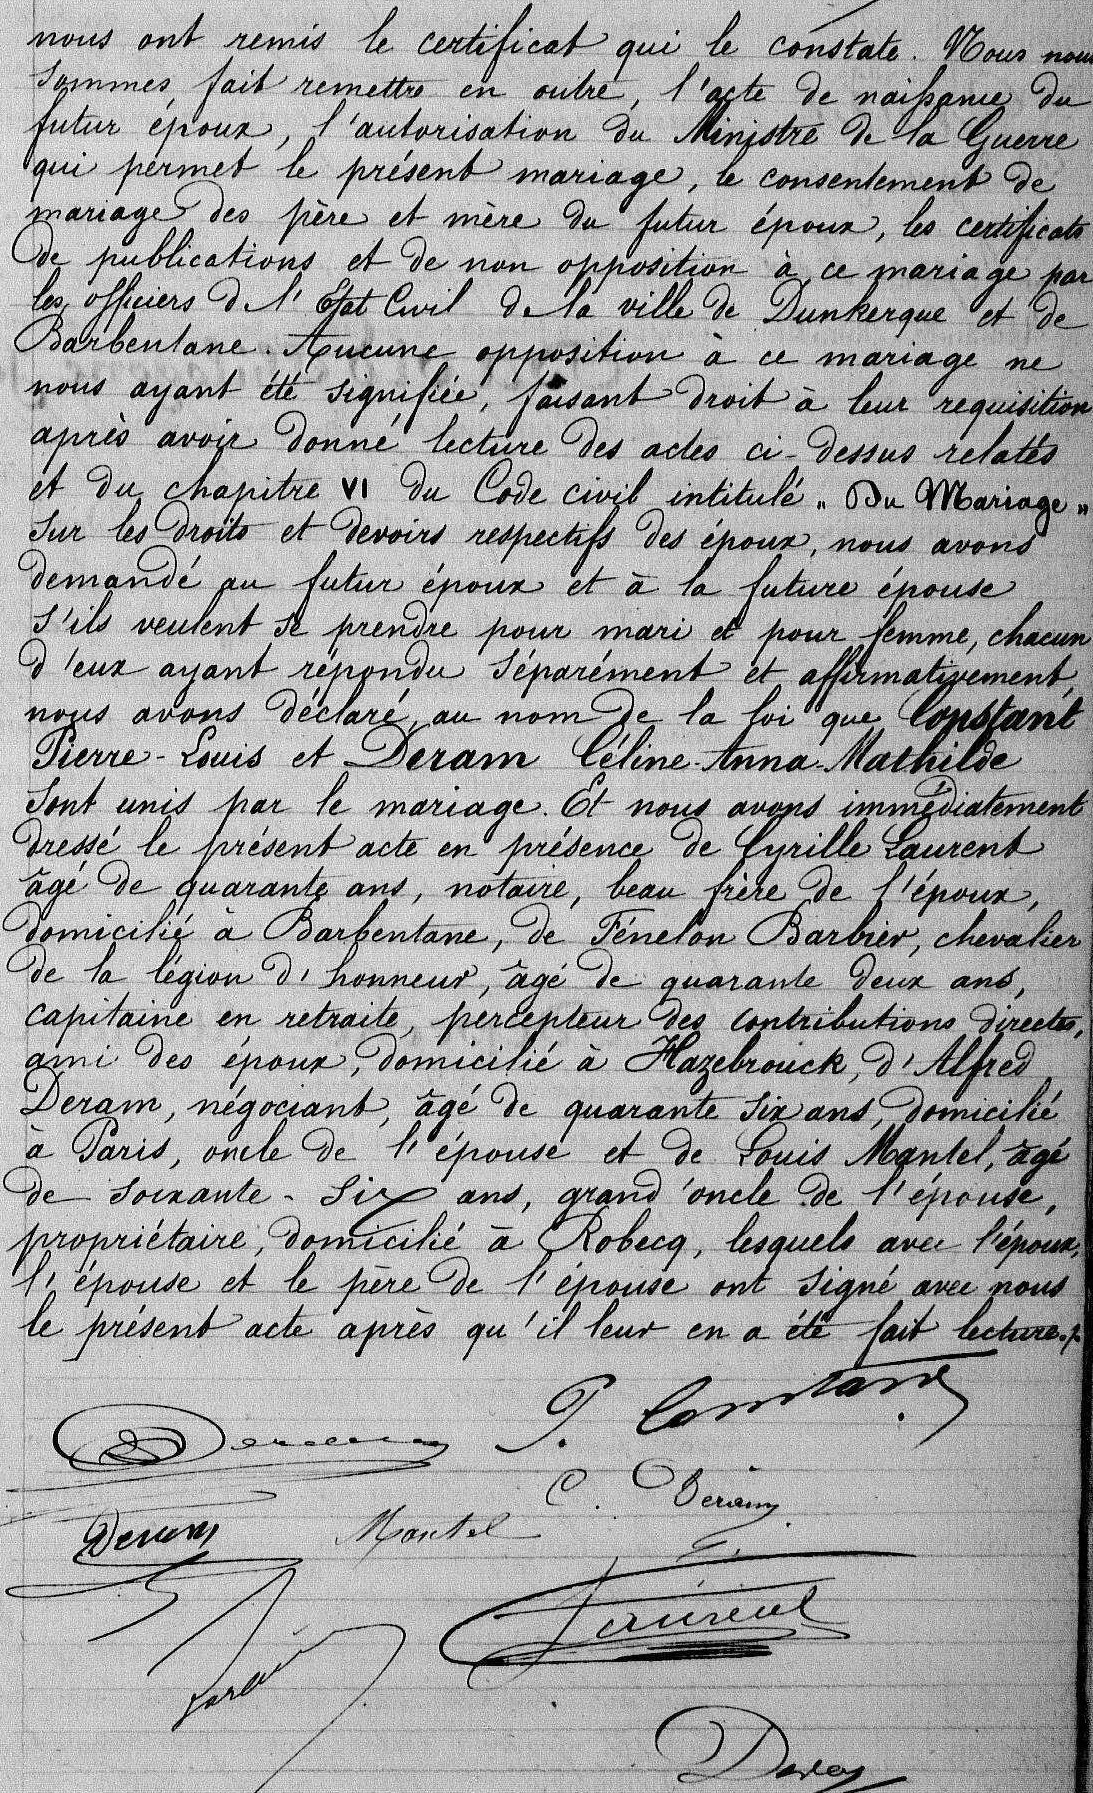 nous ont remis le certificat qui le constate. Nous nous
sommes fait remettre en outre, l'acte de naissance du
futur époux, l'autorisation du Ministre de la Guerre
qui permet le présent mariage, le consentement de
mariage des père et mère du futur époux, les certificats
de publications et de non opposition à ce mariage par
les officiers de l'Etat Civil de la ville de Dunkerque et de
Barbentane. Aucune opposition à ce mariage ne
nous ayant été signifiée, faisant droit à leur requisition
après avoir donné lecture des actes ci-dessus relatés
et du chapitre VI du Code civil intitulé „ Du Mariage „
sur les droits et devoirs respectifs des époux, nous avons
demandé au futur époux et à la future épouse
s'ils veulent se prendre pour mari et pour femme, chacun
d'eux ayant répondu séparément et affirmativement,
nous avons déclaré, au nom de la loi que Constant
Pierre-Louis et Deram Céline-Anna-Mathilde
sont unis par le mariage. Et nous avons immédiatement
dressé le présent acte en présence de Cyrille Laurent
âgé de quarante ans, notaire, beau frère de l'époux,
domicilié à Barbentane, de Fénelon Barbier, chevalier
de la légion d'honneur, âgé de quarante deux ans,
capitaine en retraite, percepteur des contributions directes,
ami des époux, domicilié à Hazebrouck, d'Alfred
Deram, négociant, âgé de quarante six ans, domicilié
à Paris, oncle de l'épouse et de Louis Mantel, âgé
de soixante-six ans, grand'oncle de l'épouse,
propriétaire, domicilié à Robecq, lesquels avec l'époux,
l'épouse et le père de l'épouse ont signé avec nous
le présent acte après qu'il leur en a été fait lecture./.
P. Constant
Deram
C. Deram
Deram Mantel
Laurent
Barbier